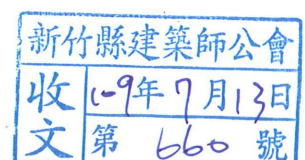 新竹縣建築師公會
收文
109年7月13日
第 660 號